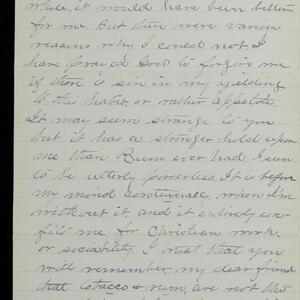 it would have been better
for me. But there were various
reasons why I could not. I
have prayed God to forgive me
if there is sin in my yielding
to this habit or rather appetite.
It may seem strange to you
but it has a stronger hold upon
me than Rum ever had. I seem
to be utterly powerless. It is before
my mind continually, when I'm
without it, and it entirely un-
fits me for Christian work
or sociability. I trust that you
will remember, my dear friend
that tobacco & rum, are not the